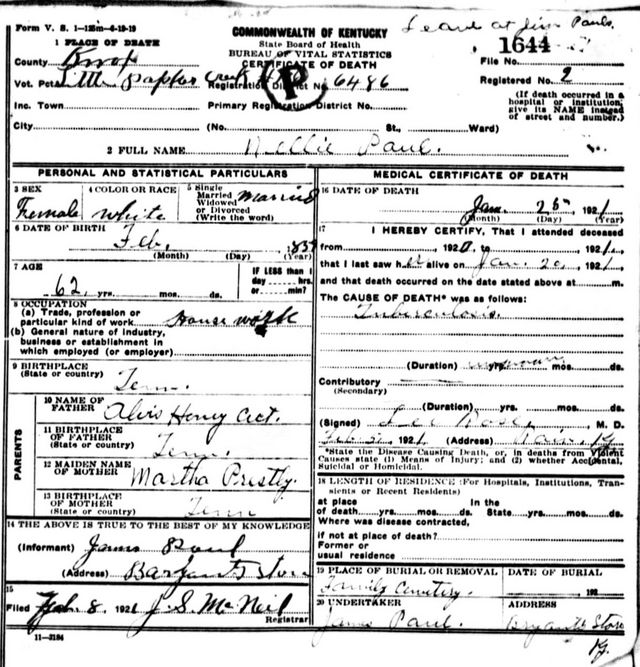 Form V. S. 1-125m-6-19-19
1 PLACE OF DEATH
County Knox
Vot. Pct. Little
Inc. Town
City
COMMONWEALTH OF KENTUCKY
State Board of Health
BUREAU OF VITAL STATISTICS
CERTIFICATE OF DEATH
Registration District No. 6486
Primary Registration District No.
(No. St., Ward)
at Jim Pauls.
1644
File No.
Registered No. 2
(If death occurred in a
hospital or institution,
give its NAME instead
of street and number.)
2 FULL NAME Nellie Paul.
PERSONAL AND STATISTICAL PARTICULARS
3 SEX
Female
4 COLOR OR RACE
white
5 Single
Married
Widowed
or Divorced
(Write the word)
Married
6 DATE OF BIRTH
Feb.
(Month) (Day) (Year)
7 AGE
62 yrs. mos. ds.
IF LESS than 1
day hrs.
or min?
8 OCCUPATION
(a) Trade, profession or
particular kind of work House work
(b) General nature of industry,
business or establishment in
which employed (or employer)
9 BIRTHPLACE
(State or country) Tenn.
PARENTS
10 NAME OF
FATHER Henry
11 BIRTHPLACE
OF FATHER
(State or country) Tenn.
12 MAIDEN NAME
OF MOTHER Martha Prestly.
13 BIRTHPLACE
OF MOTHER
(State or country) Tenn
14 THE ABOVE IS TRUE TO THE BEST OF MY KNOWLEDGE
(Informant) James Paul
(Address) Store
15
Filed Feb. 8, 1921 J. S. McNeil
Registrar
11-3184
MEDICAL CERTIFICATE OF DEATH
16 DATE OF DEATH
Jan. 25, 1921
(Month) (Day) (Year)
17
I HEREBY CERTIFY, That I attended deceased
from 1920, to 1921,
that I last saw her alive on Jan. 20, 1921
and that death occurred on the date stated above at m.
The CAUSE OF DEATH* was as follows:
Tuberculosis.
(Duration) unknown yrs. mos. ds.
Contributory
(Secondary)
(Duration) yrs. mos. ds.
(Signed) M. D.
1921 (Address) Ky
*State the Disease Causing Death, or, in deaths from Violent
Causes state (1) Means of Injury; and (2) whether Accidental,
Suicidal or Homicidal.
18 LENGTH OF RESIDENCE (For Hospitals, Institutions, Tran-
sients or Recent Residents)
at place In the
of death yrs. mos. ds. State yrs. mos. ds.
Where was disease contracted,
if not at place of death?
Former or
usual residence
19 PLACE OF BURIAL OR REMOVAL
Family Cemetery.
DATE OF BURIAL
192
20 UNDERTAKER
James Paul.
ADDRESS
Bryants Store
Ky.